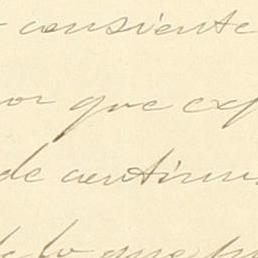 consiente
or que exp
de continu
de lo que pu